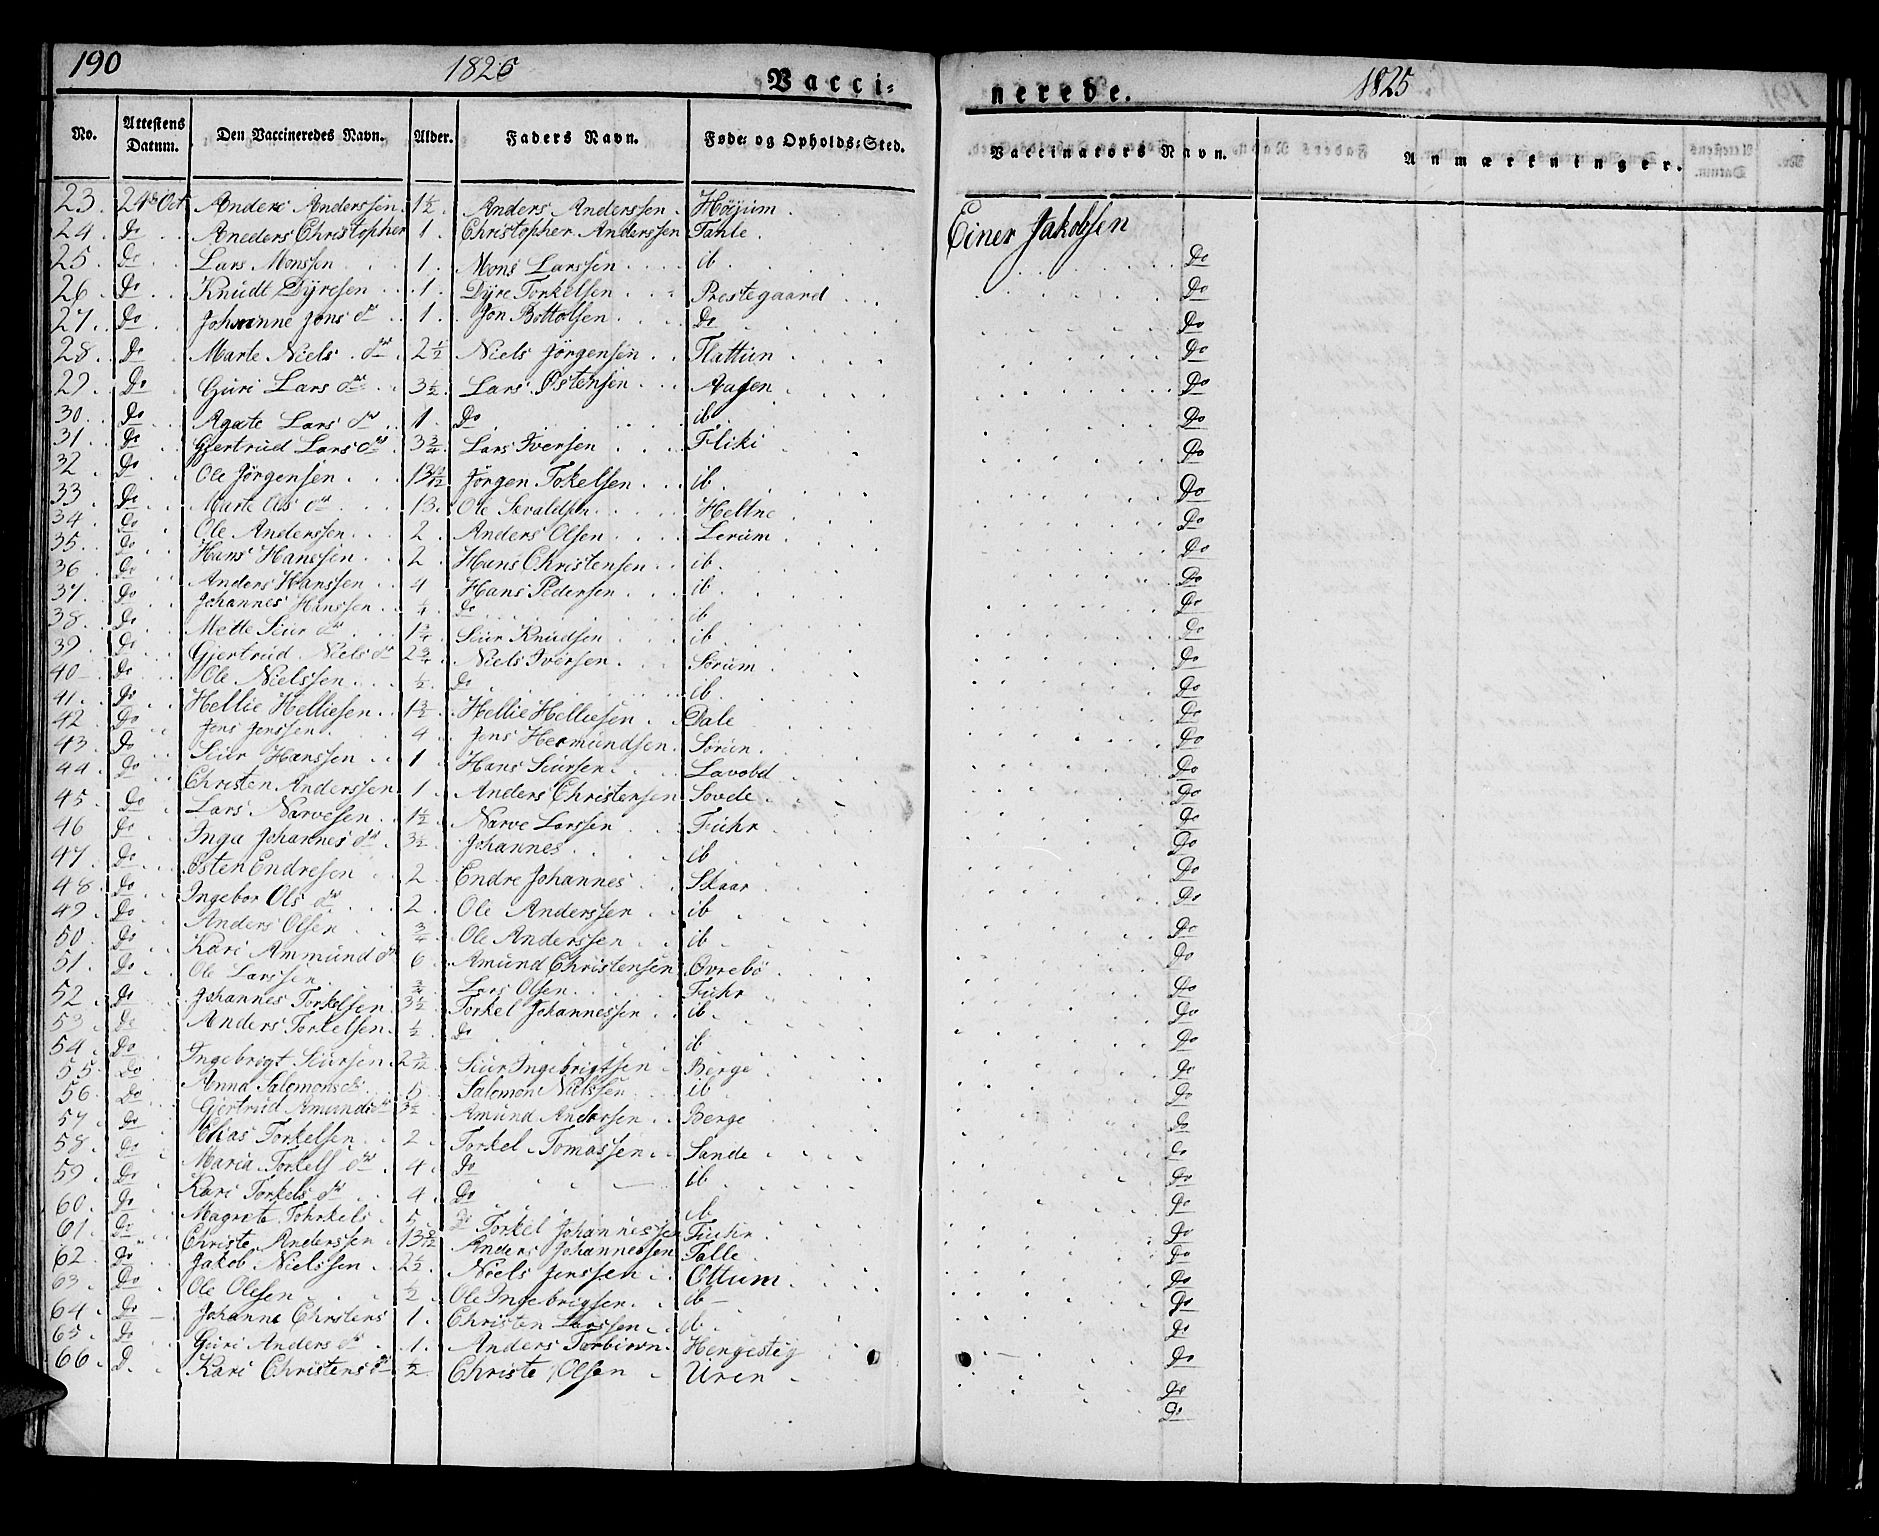 190 1826 Vacci= nerede. 1825
No. Attestens Datum. Den Vaccineredes Navn. Alder. Faders Navn. Føde= og Opholds=Sted. Vaccinators Navn. Anmærkninger.
23. 24de Oct Anders Anderssen. 1½ Anders Anderssen. Høyum. Einer Jakobsen
24. Do Aneders Christopher 1. Christopher Anderssen Tahle. Do
25. Do Lars Monssen 1. Mons Larssen ib. Do
26. Do Knudt Dÿresen 1. Dÿre Torkelsen Prestegaard Do
27. Do Johanne Jons dtr 1. Jon Bottolsen Do Do
28. Do Marte Niels dtr 2½ Niels Jörgensen Flattun Do
29. Do Guri Lars dtr 3½ Lars Østensen Aasen Do
30. Do Agate Lars dtr 1 Do ib. Do
31. Do Gjertrud Lars dtr 3¾ Lars Iversen Fliki Do
32. Do Ole Jørgensen Jörgen Tokelsen ib. Do
33. Do Marte Ols dtr 13. Ole Sevaldsen Heltne Do
34. Do Ole Anderssen 2. Anders Olsen Lerum Do
35. Do Hans Hanssen 2 Hans Christensen ib. Do
36. Do Anders Hanssen 4 Hans Pedersen ib. Do
37. Do Johannes Hanssen ¼ Do ib Do
38. Do Mette Siur dtr 1¾ Siur Knudsen ib. Do
39. Do Gjertrud Niels dtr 2¾ Niels Iversen Sorum Do
40 Do Ole Nielssen ½ Do ib. Do
41. Do Hellie Helliesen Hellie Helliesen Dale Do
42. Do Jens Jenssen 4 Jens Hermundsen. Sorun. Do
43. Do Siur Hanssen 1 Hans Siursen Lavold Do
44. Do Christen Anderssen 1. Anders Christensen Sovde Do
45. Do Lars Narvesen 1½ Narve Larssen Fuhr Do
46 Do Inga Johannes dtr 3½ Johannes ib Do
47. Do Østen Endresen 2 Endre Johannes Skaar Do
48. Do Ingebor Ols dtr 2 Ole Anderssen ib Do
49. Do Anders Olsen ¾ Ole Anderssen ib Do
50. Do Kari Ammund dtr 6 Amund Christensen Øvrebö Do
51. Do Ole Larssen ¾ Lars Olsen Fuhr Do
52. Do Johannes Torkelsen 3½ Torkel Johannessen ib. Do
53. Do Anders Torkelsen ½ Do ib Do
54. Do Ingebrigt Siursen Siur Ingebrigtsen Berge Do
55. Do Anna Salomons 5 Salomon Nielssen ib Do
56. Do Gjertrud Amunds dtr 3½ Amund Anderssen Berge Do
57. Do Elias Torkelsen 2 Torkel Tomassen Sande Do
58. Do Maria Torkels dtr 4 Do ib. Do
59. Do Kari Torkels dtr 4 Do ib Do
60. Do Magrete Tohrkels 5 Torkel Johannessen Fuhr Do
61. Do Christe Anderssen Anders Johannessen Talle Do
62. Do Jakob Nielssen 2½ Niels Jenssen Ottum Do
63. Do Ole Olesen ½ Ole Ingebrigsen ib Do
64. Do Johanne Christens 1. Christen Larssen ib. Do
65. Do Guri Anders dtr 1. Anders Torbiorn Hengestig Do
66. D. Kari Christens dtr ½ Christe Olsen Uren Do
Do
Do